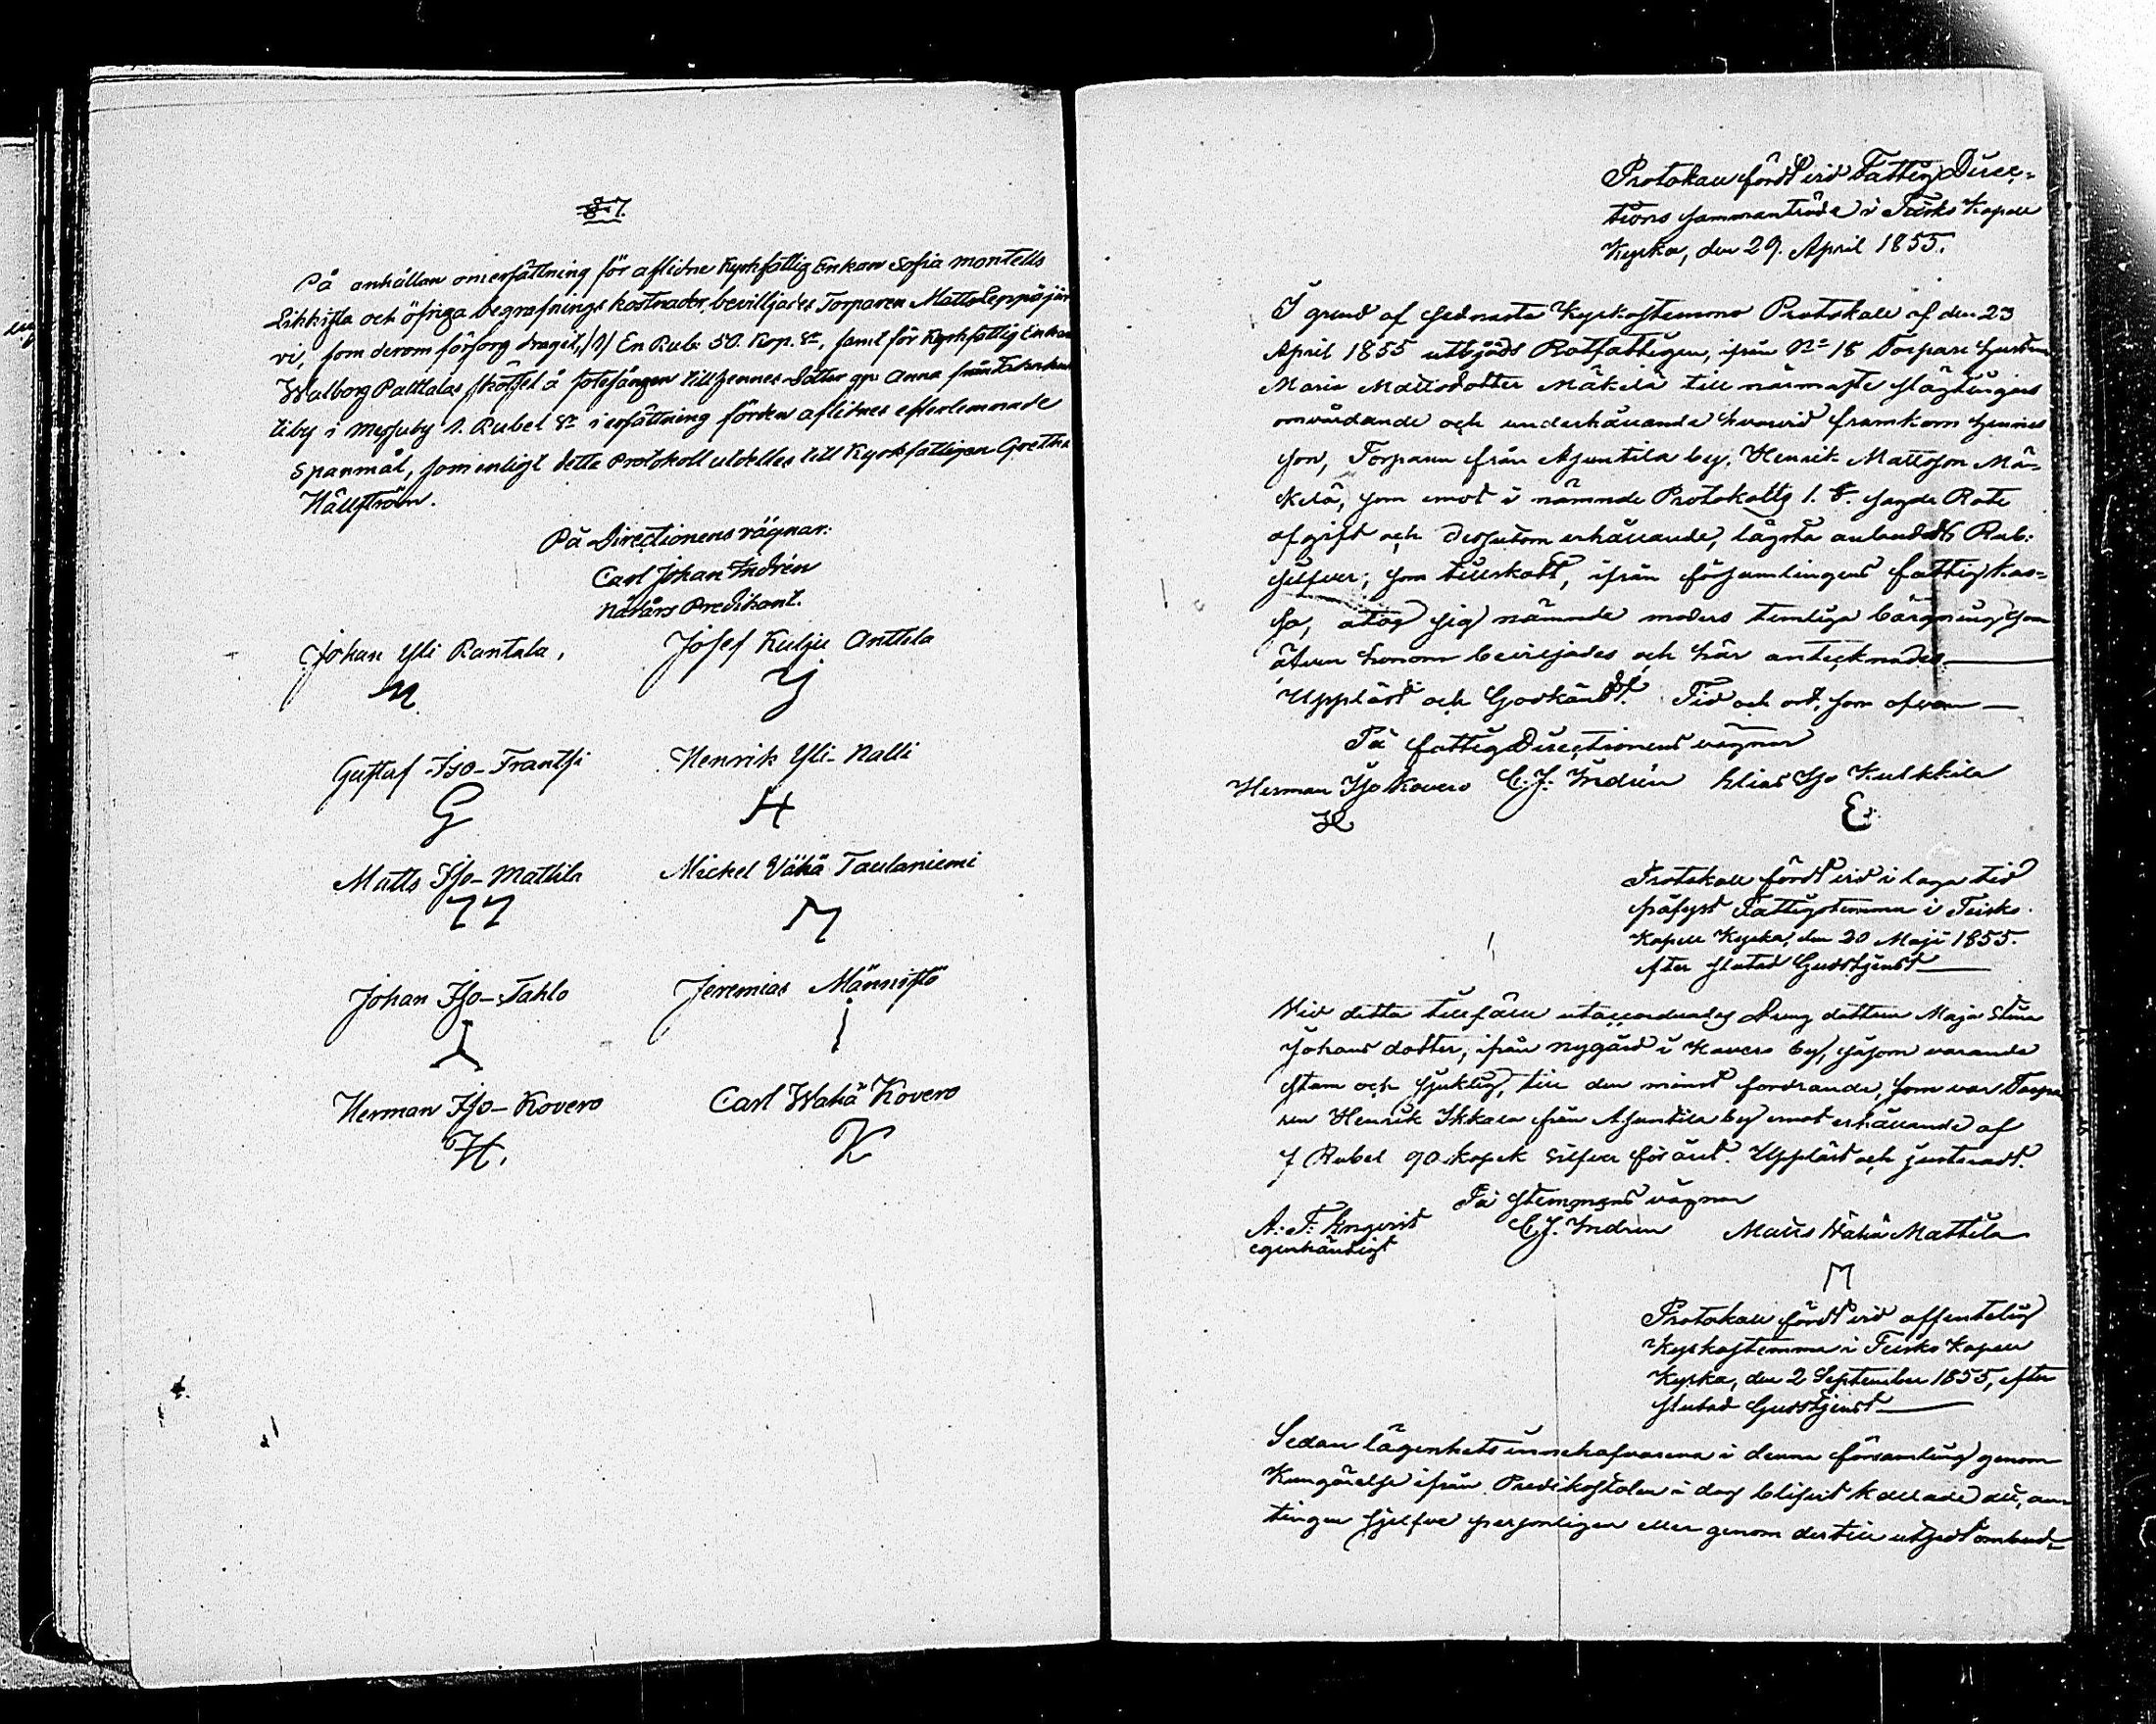 § 7.
På anhållan om ersättning för aflidne Kyrkfattig Enkan Sofia Montells
Likkista och öfriga begrafnings kostnader, bevilljades Torparen Matts Leppäjär
vi, som derom försorg dragit, (1) En Rub. 50. Kop. Sr, samt för Kyrkfattig Enkan
Walborg Pallalas skötsel å sotesängen till hennes Dotter gp: Anna från
liby i Messuby 1. Rubel Sr i ersättning för den aflidnes efterlemnade
Spanmål, som enligt detta Protokoll utdeltes till Kyrkfattigen Greetha
Hällström.
På Directionens vägnar:
Carl Johan Indrén
Nådårs Predikant.
Johan Yli Rantala, Josef Kulju Anttila
Gustaf Iso-Frantsi Henrik Yli-Nalli
G H
Matts Iso-Mattila Mickel Vähä Taulaniemi
M
Johan Iso-Tahlo Jeremias Männistö
Herman Iso-Kovero Carl Wähä Kovero
H. K
Protokoll fördt vid Fattig Direc-
tions sammanträde i Teisko Kapell
Kyrka, den 29. April 1855.
I grund af sednaste Kyrkostemmo Protokoll af den 23
April 1855 utbjöds Rotfattigen, ifrån No 18 Torpare Hustrun
Maria Mattsdotter Mäkelä till närmaste slägtingars
omvårdande och underhållande hvarvid framkom hennes
son, Torparen från Asuntila by, Henrik Mattsson Mä-
kelä, som emot i nämnde Protokolls 1. §. sagde Rote
afgift och dessutom erhållande, lägsta anbudet Rub:
silfver, som tillskott, ifrån församlingens fattig kas-
sa, åtog sig nämnde moders timliga bärgning som
äfven honom beviljades och här antecknades
Uppläst och Godkändt. Tid och ort, som ofvan
På fattig Directionens vägnar
Herman Iso Kovero C. J. Indrén Elias Iso Kulkkila
H E
Protokoll fördt vid i laga tid
pålyst Fattigstemma i Teisko
Kapell Kyrka, den 20 Maji 1855.
efter slutad Gudstjenst
Vid detta tillfälle utackorderades Dreng dottern Maja Stina
Johans dotter, ifrån Nygård i Kovero by, såsom varande
stum och sjuklig, till den minst fordrande, som var Torpa
ren Henrik Ikkala från Asuntila by emot erhållande af
7 Rubel 90 kopek silfver för året. Uppläst och justeradt.
På stemmans vägnar
A. F. Engqvist C. J. Indrén Matts Wähä Mattila
egenhändigt
M
Protokoll fördt vid offentelig
Kyrkostemma i Teisko Kapell
Kyrka, den 2 September 1855, efter
slutad Gudstjenst
Sedan lägenhets innehafvarena i denna församling genom
Kungörelse ifrån Predikostolen i dag blifvit kallade att, an
tingen sjelfve personligen eller genom dertill utsedt ombud